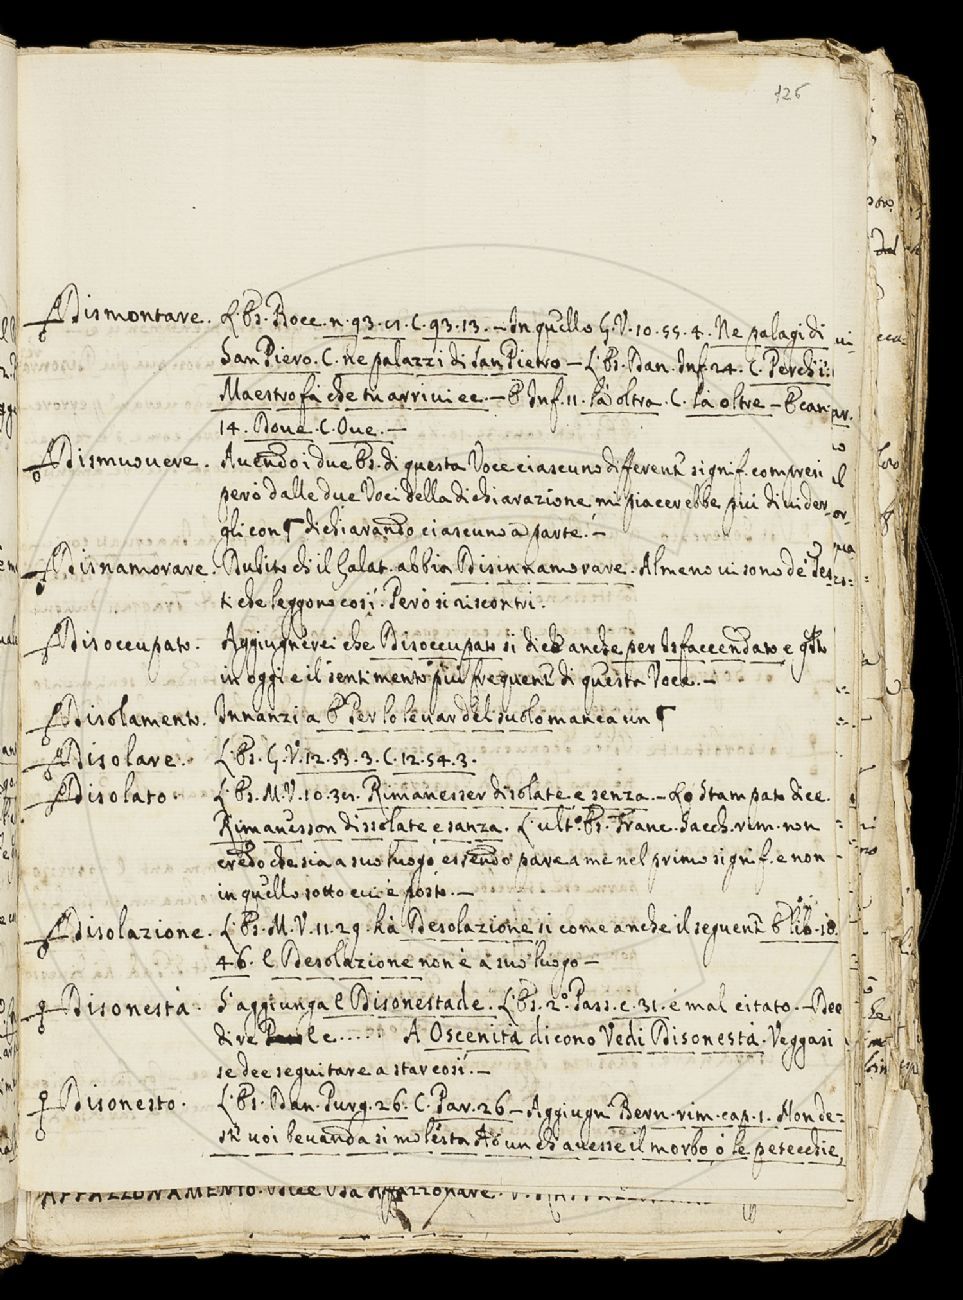 126
Dismontare. L'Es. Bocc. n. 93. 12. C. 93. 13. – In quello G. V. 10. 55. 4. Ne palagi di
San Piero. C. ne palazzi di San Pietro – L'Es. Dan. Inf. 24. C. Perch'i:
Maestro fa che tu arrivi ec. – E Inf. 11. là oltra. C. là oltre – E can
14. Dove. C. Ove. –
Dismuovere. Avendo i due Es. di questa Voce ciascuno differente signif. compresi
però dalle due Voci della dichiarazione mi piacerebbe più divider-
gli con ¶ dichiarando ciascuno a parte. –
Disnamorare. Dubito ch'il Galat. abbia Disinnamorare. Almeno vi sono de' Tes-
ti che leggono così. Però si riscontri.
Disoccupato. Aggiugnerei che Disoccupato si dice anche per Isfaccendato e qsto
in oggi è il sentimento più frequente di questa Voce. –
Disolamento. Innanzi a E Per lo levar del suolo manca un ¶
Disolare. L'Es. G. V. 12. 53. 3. C. 12. 54. 3.
Disolato. L'Es. M. V. 10. 31. Rimanesser disolate e senza. – Lo Stampato dice
Rimanesson dissolate, e sanza. L'ult.o Es. Franc. Sacch. rim. non
credo che sia a suo luogo, essendo pare a me nel primo signif. e non
in quello sotto cui è posto. –
Disolazione. L'Es. M. V. 11. 29. ha Desolazione si come anche il seguente E lib. 18.
46. E Desolazione non è a suo luogo –
Disonestà. S'aggiunga E Disonestade. L'Es. 2.o Pass. c. 31. è mal citato. – Dee
dire le ..... A Oscenità dicono Vedi Disonestà. Veggasi
se dee seguitare a star così. –
Disonesto. L'Es. Dan. Purg. 26. C. Par. 26 – Aggiugni Bern. rim. cap. 1. Nonde-
sti voi bevanda si molesta Ad un ch'avesse il morbo, o le petecchie,
APPAZZONAMENTO.